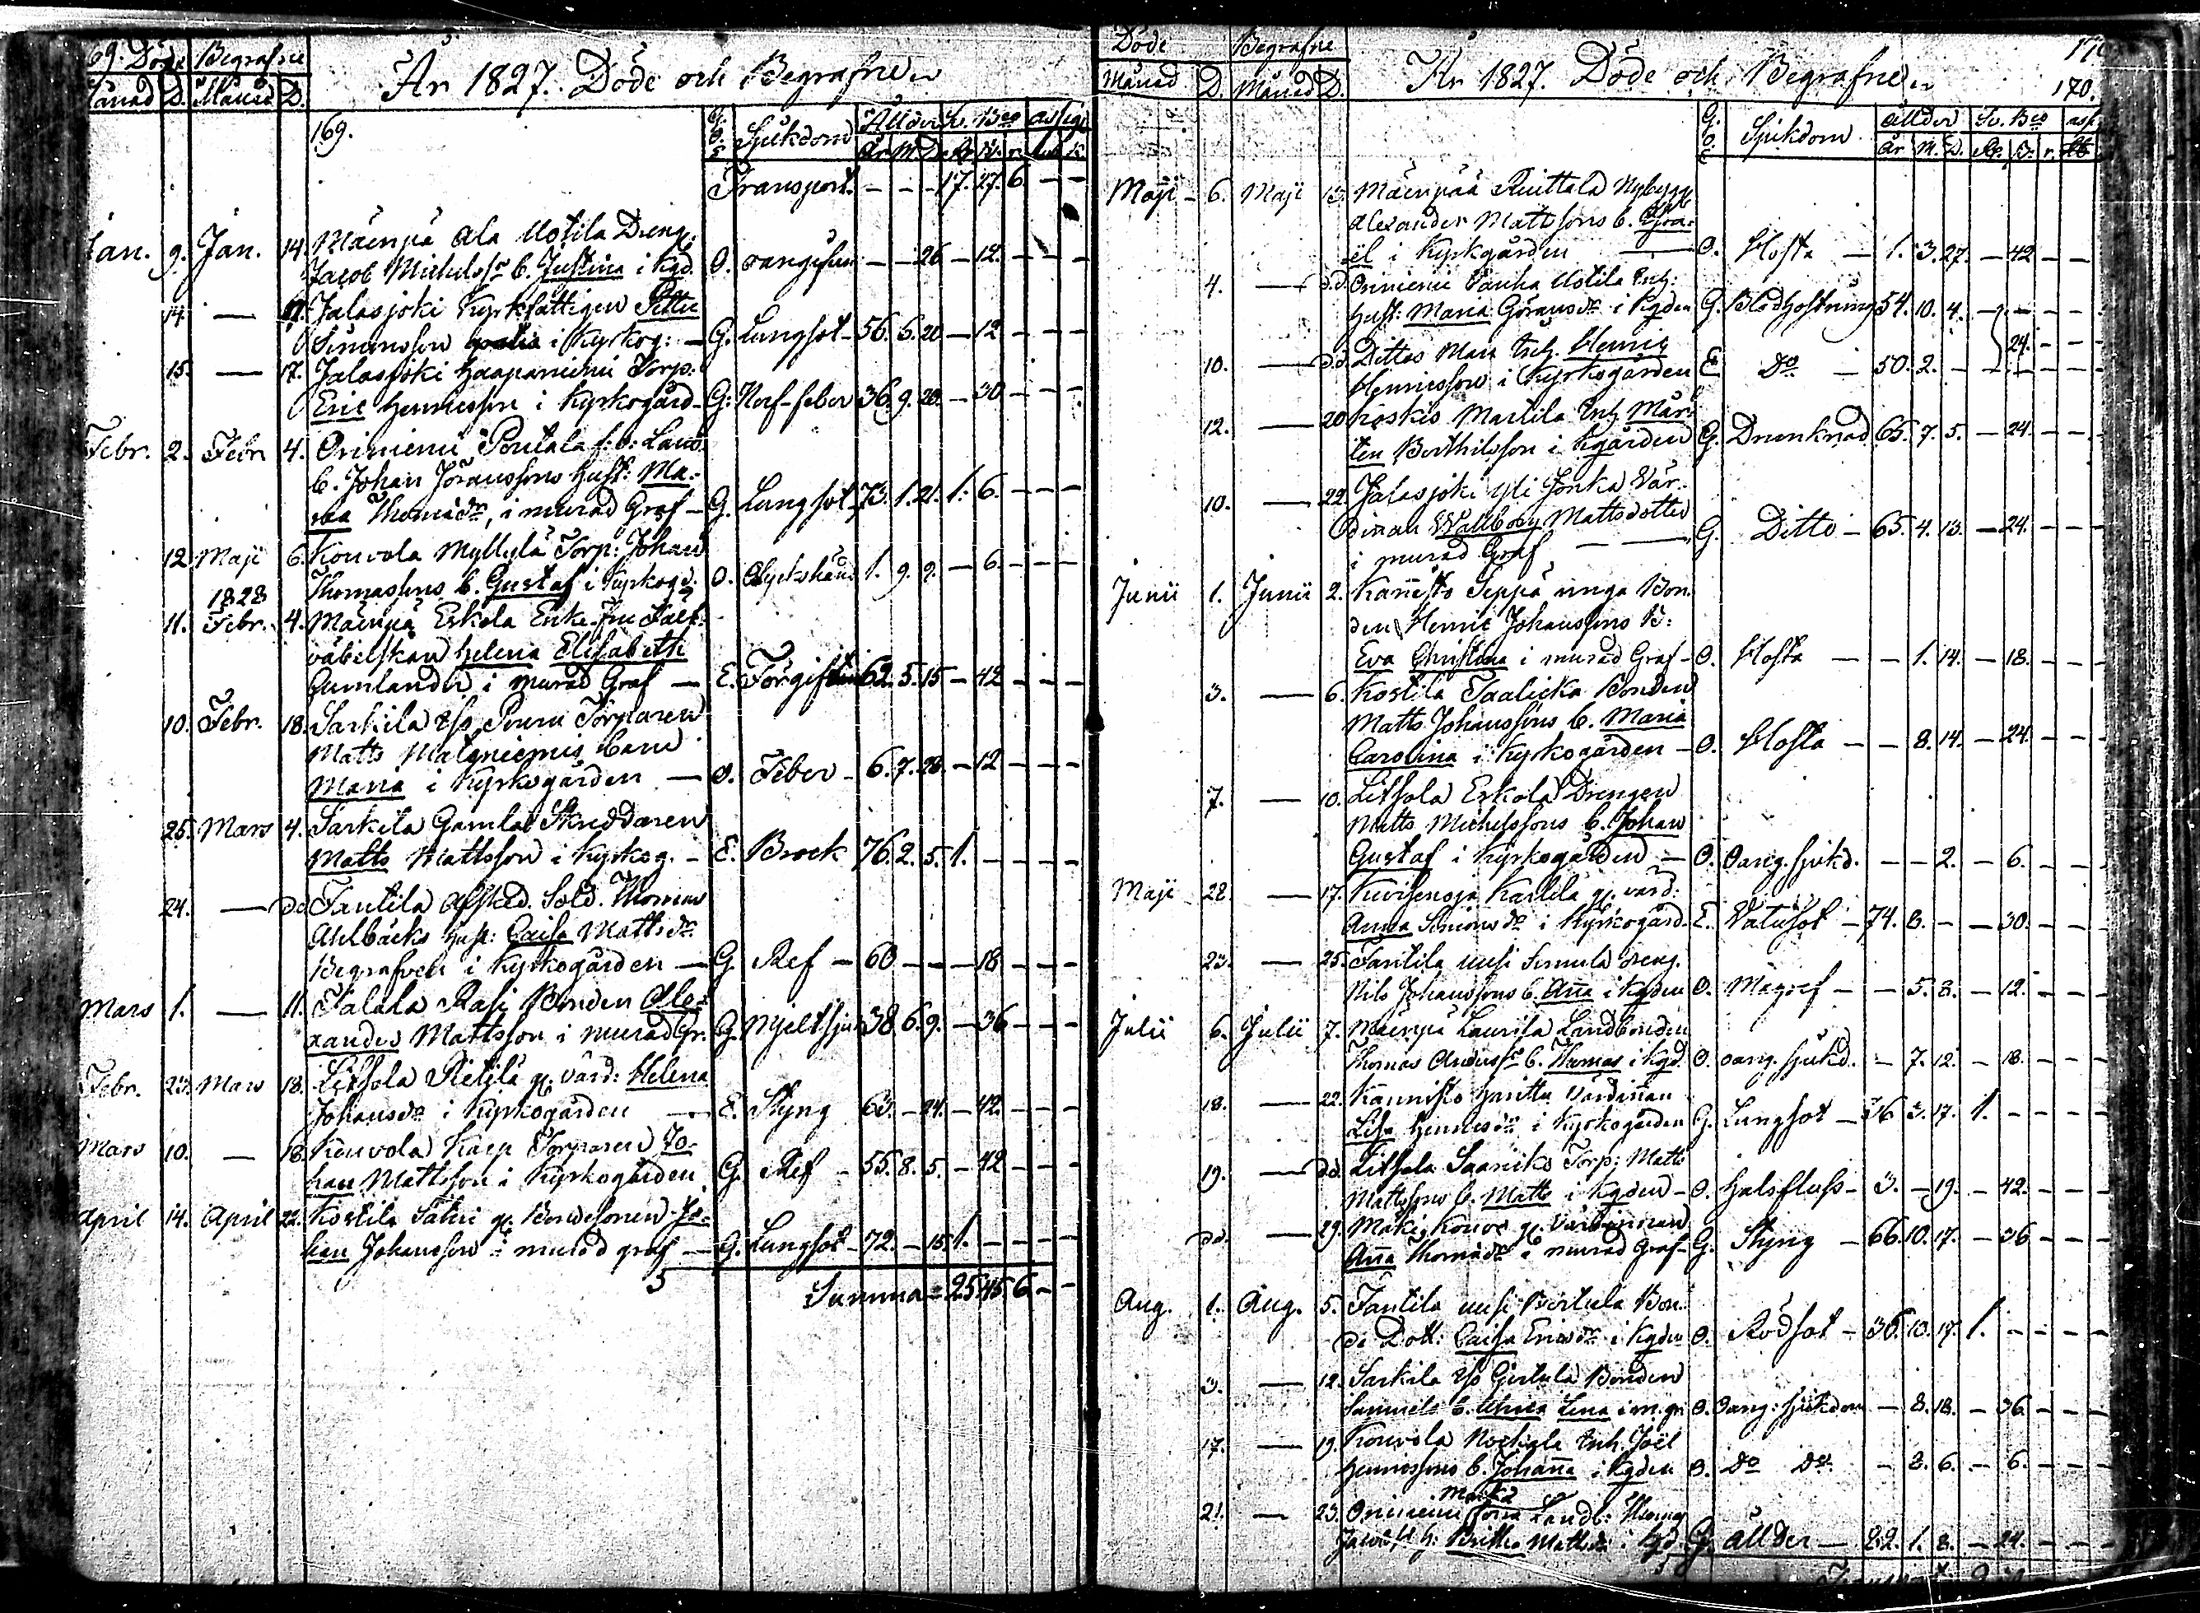 69. Döde Begrafne
Månad D. Månad D.
År 1827. Döde och Begrafne
169.
G. O. E. Sjukdom Ållder Sv. Bco
År M. D. R. B. r.
Transport. — — — 17. 27. 6. — —
Jan. 9. Jan. 14. Mäenpä Ala Uotila Dreng.
Jacob Michelss. b. Justina i Kgd. O. oangifven — — 26 — 12. — —
14. — Jalasjoki Kyrkfattigen Petter
Simonsson i Kyrkog: — G. Lungsot — 56. 6. 20 — 12 — — —
15. — 17. Jalasjoki Haapaniemi Torp:
Eric Henricsson i Kyrkogård — G. Nerf-feber 36. 9. 20. — 30 — — —
Febr. 2. Febr 4. Oriniemi Pentala f. d. Land
b. Johan Jöranssons Hust: Ma-
ria Thomædr, i murad Graf — G. Lungsot 73. 1. 21. 1. 6. — — —
12 Maji 6. Kouvola Myllylä Torp: Johan
Thomassons b. Gustaf i Kyrkogd. O. Olyckshänd. 1. 9. 9. — 6. — — —
1828
11. Febr. 4. Mäenpä Erkola Enke Fru Fält-
väbelskan Helena Elisabeth
Gumlander i murad Graf — E. Förgiftn 62. 5. 15 — 42 — — —
10. Febr. 18. Sarkila Pouru Torparen
Matts Matsniemis barn
Maria i Kyrkogården — O. Feber — 6. 7. 28. — 12 — — —
25. Mars 4. Sarkila Gamla Skreddaren
Matts Mattsson i Kyrkog. — E. Brock 76. 2. 5. 1. — — — —
24. — do Tantila Afsked. Sold. Thomas
Ahlbäcks Hust: Caisa Mattsdr
Begrafven i Kyrkogården — G. Ref — 60 — — — 18 — — —
Mars 1. — 11. Talala Rasi Bonden Ale-
xander Mattsson i murad Gr. G. Mjeltsju 38. 6. 9. — 36 — — —
Febr. 23. Mars 18. Litsola Rietilä g. värd: Helena
Johansdr i Kyrkogården — E. Styng 63. — 24. — 42. — — —
Mars 10. — 18. Kouvola Karp Torparen Jo-
han Mattsson i Kyrkogården G. Ref — 55. 8. 5. — 42 — — —
April 14. April 22. Kostila Sakri g. Bondesonen Jo-
han Johansson i murad graf — G. Lungsot — 72. — 15. 1. — — — —
5 Summa = 25. 45. 6. — —
Döde Begrafne
Månad D. Månad D.
År 1827. Döde och Begrafne
170.
G. O. E. Sjukdom Ållder Sv. Bco
År M. D. R. B. r.
Maji — 6. Maji 13. Mäenpää Ruittala Nybygg.
Alexander Mattssons b. Isra-
ël i Kyrkgården — O. Hosta — 1. 3. 27. — 42 — — —
4. — do Oriniemi Uotila Inh:
Hust: Maria Göransdr i Kgden G. Blodhostning 54. 10. 4. — — — —
10. — do Dittos Man Inh. Henric 24. — —
Henricsson i Kyrkogården E. Do — 50. 2. — — — — —
12. — 20 Koskis Martila Inh. Mår-
ten Berthilsson i Kgården G. Drunknad 65. 7. 5. — 24. — — —
10. — 22. Jalasjoki Yli Jonka Vär-
dinnan Wallborg Mattsdotter
i murad Graf — G. Ditto — 65. 4. 13. — 24. — — —
Junii 1. Junii 2. Kannisto Seppä unga Bon-
den Henric Johanssons B:
Eva Christina i murad Graf — O. Hosta — — 1. 14. — 18. — — —
3. — 6. Kostila Taalicka Bonden
Matts Johanssons b. Maria
Carolina i Kyrkogården — O. Hosta — — 8. 14. — 24. — — —
7. — 10. Litsola Erkola Drengen
Matts Michelssons b. Johan
Gustaf i Kyrkogården — O. Oang. sjukd. — — 2. — 6. — — —
Maji 28. — 17. Kuvisenoja Karlila g. värd:
Anna Simonsdr i Kyrkogård. E. Vatusot — 74. 8. — — 30. — — —
23. — 25. Tantila uusi Simula dreng.
Nils Johanssons b. Anna i Kgden O. Magref — — 5. 8. — 12. — — —
Julii 6. Julii 7. Mäenpä Laurila Landbonden
Thomas Anderss. b. Thomas i Kgd. O. oang. sjukd. — 7. 12. — 18. — — —
18. — 22. Kannisto Haritta Värdinnan
Lisa Henricsdr i Kyrkogården G. Lungsot — 36 3. 17. 1. — — — —
19. — do. Litsola Saaniko Torp: Matts
Mattssons b. Matts i Kgden — O. Halsfluss — 3. — 19. — 42. — — —
do. — 29. Mäki Kouvo g. Värdinnan
Anna Thomædr i murad Graf — G. Styng — 66. 10. 17. — 36 — — —
Aug. 1. Aug. 5. Tantila uusi Bertula Bon-
de Dott: Caisa Ericsdr i Kgden O. Rödsot — 36. 10. 17. 1. — — — —
3. — 12. Sarkila Gertula Bonden
Samuels b. Ulrica Lena i m. gr. O. Oang: sjukdom — 8. 18. — 36. — — —
17. — 19. Kouvola Nockala Inh. Joël
Henricssons b. Johanna i Kgden O. Do Do — 2. 6. — 6. — — —
21. — 23. Oriniemi Landb: Thomas
Jacobss. h: Britha Mattsdr i Kgd. G. ållder — 82. 1. 8. — 24. — — —